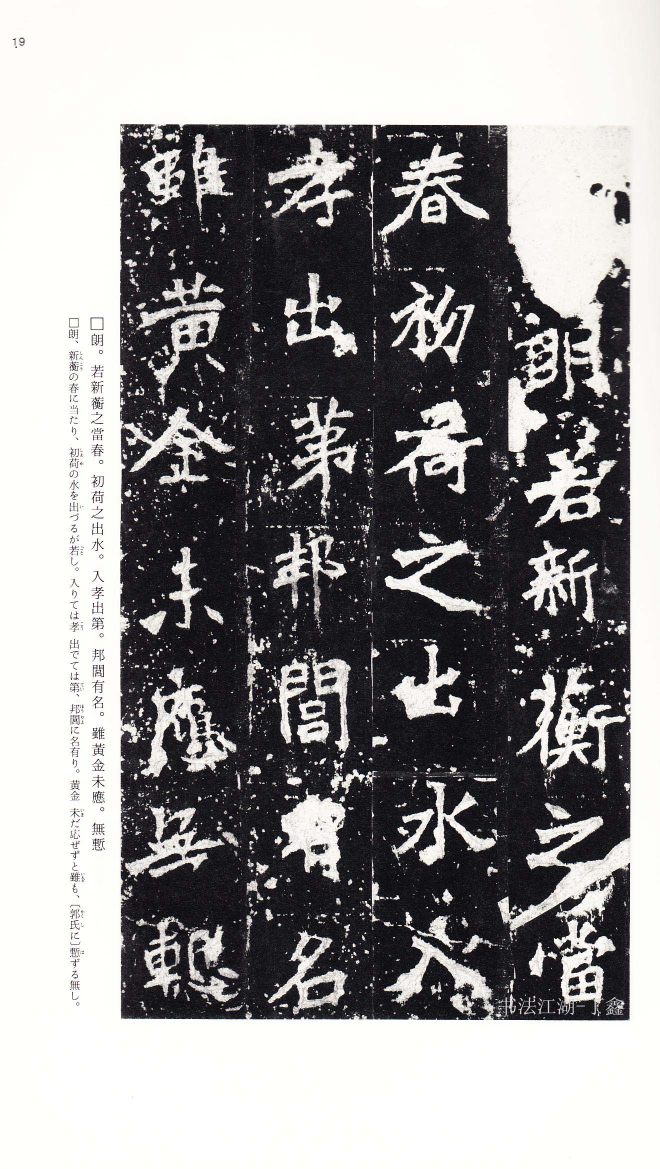 19
朗若新蘅之當
春初荷之出水入
孝出第邦閭有名
雖黃金未應無慙
书法江湖
鑫
□朗。若新蘅之當春。初荷之出水。入孝出第。邦閭有名。雖黃金未應。無慙
□朗、新蘅の春に当たり、初荷の水を出づるが若し。入りては孝 出でては第、邦閭に名有り。黄金 未だ応ぜずと雖も、〔郭氏に〕慙ずる無し。